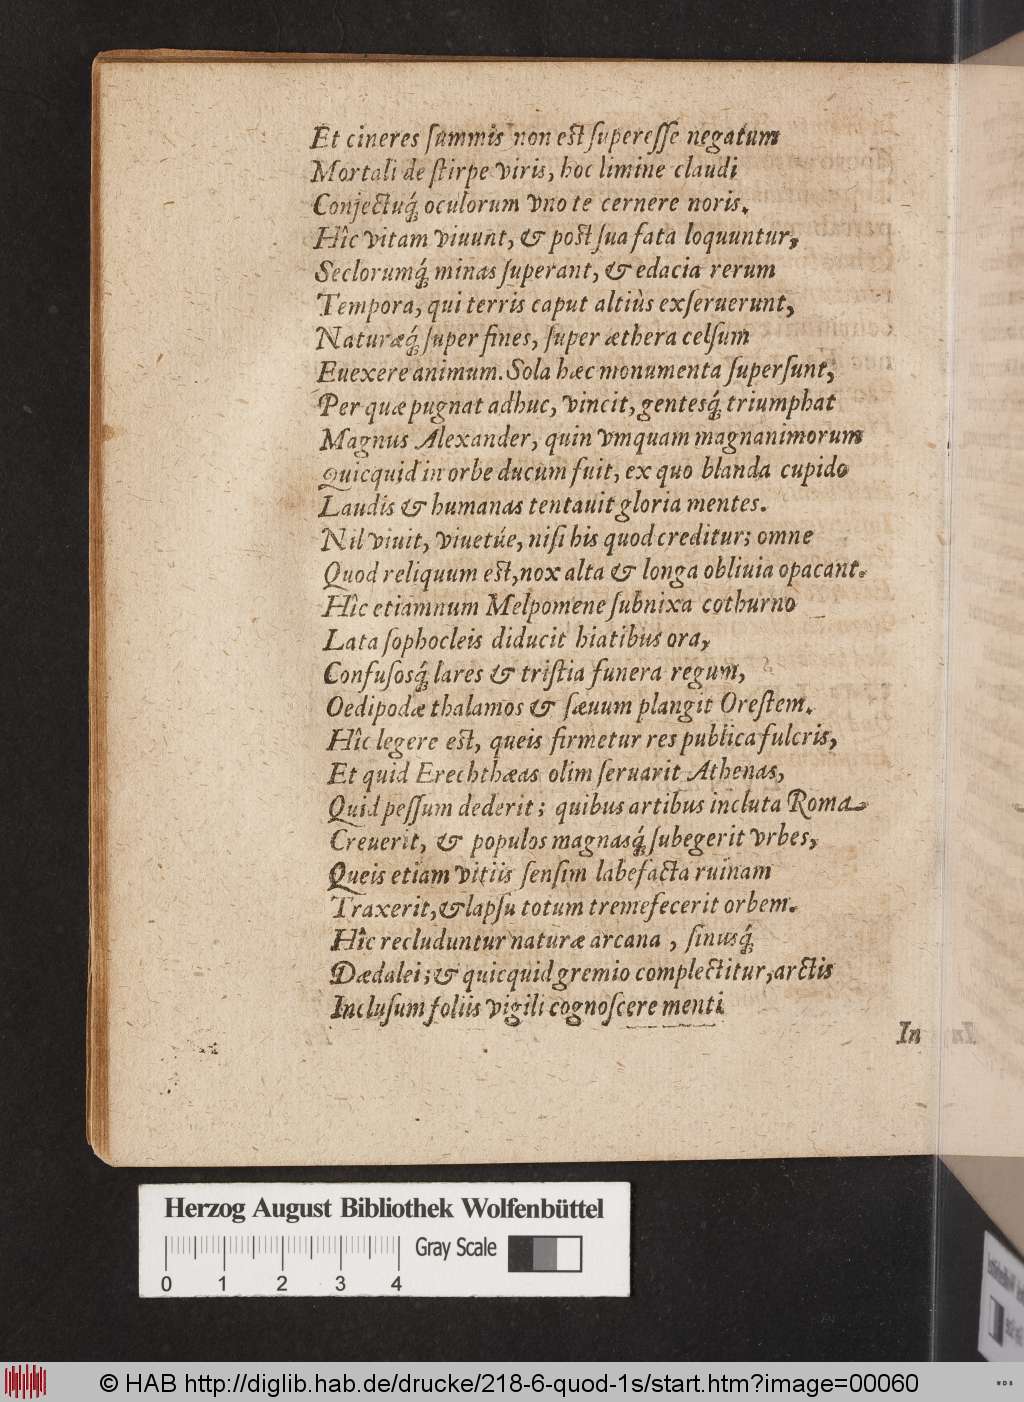 Et cineres ſummis non eſt ſupereſſe negatum
Mortali de ſtirpe viris, hoc limine claudi
Conjectuq́; oculorum vno te cernere noris.
Hîc vitam viuunt, & poſt ſua fata loquuntur,
Seclorumq́; minas ſuperant, & edacia rerum
Tempora, qui terris caput altiùs exſeruerunt,
Naturæq́; ſuper fines, ſuper æthera celſum
Euexere animum. Sola hæc monumenta ſuperſunt,
Per quæ pugnat adhuc, vincit, gentesq́; triumphat
Magnus Alexander, quin vmquam magnanimorum
Quicquid in orbe ducum fuit, ex quo blanda cupido
Laudis & humanas tentauit gloria mentes.
Nil viuit, viuetúe, niſi his quod creditur; omne
Quod reliquum eſt, nox alta & longa obliuia opacant.
Hîc etiamnum Melpomene ſubnixa cothurno
Lata ſophocleis diducit hiatibus ora,
Confuſosq́; lares & triſtia funera regum,
Oedipodæ thalamos & ſæuum plangit Oreſtem.
Hîc legere eſt, queis firmetur res publica fulcris,
Et quid Erechthæas olim ſeruarit Athenas,
Quid peſſum dederit; quibus artibus incluta Roma
Creuerit, & populos magnasq́; ſubegerit vrbes,
Queis etiam vitiis ſenſim labefacta ruinam
Traxerit, & lapſu totum tremefecerit orbem.
Hîc recluduntur naturæ arcana, ſinusq́;
Dædalei; & quicquid gremio complectitur, arctis
Incluſum foliis vigili cognoſcere menti
In
Herzog August Bibliothek Wolfenbüttel
Gray Scale
0 1 2 3 4
© HAB http://diglib.hab.de/drucke/218-6-quod-1s/start.htm?image=00060